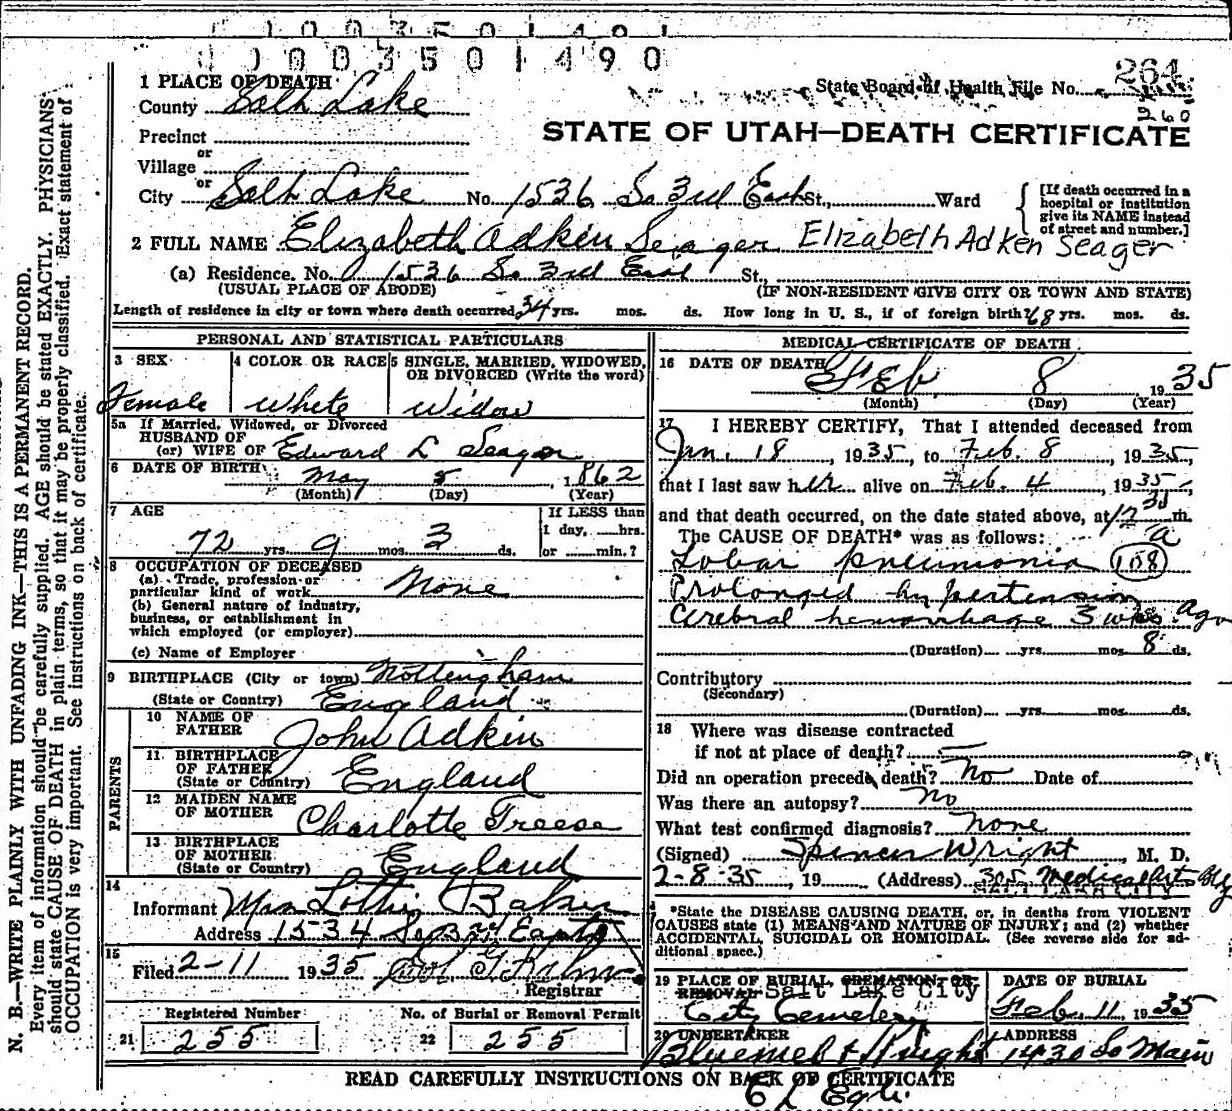 1003501490
1003501490
264
State Board of Health File No.
260
STATE OF UTAH—DEATH CERTIFICATE
1 PLACE OF DEATH
County Salt Lake
Precinct
or
Village
or
City Salt Lake No. 1536 So 3rd East St., Ward
[If death occurred in a hospital or institution give its NAME instead of street and number.]
2 FULL NAME Elizabeth Adkin Seager Elizabeth Adken Seager
(a) Residence. No. 1536 So 3rd East St.,
(USUAL PLACE OF ABODE) (IF NON-RESIDENT GIVE CITY OR TOWN AND STATE)
Length of residence in city or town where death occurred 34 yrs. mos. ds. How long in U. S., if of foreign birth? 68 yrs. mos. ds.
PERSONAL AND STATISTICAL PARTICULARS
3 SEX 4 COLOR OR RACE 5 SINGLE, MARRIED, WIDOWED, OR DIVORCED (Write the word)
Female White Widow
5a If Married, Widowed, or Divorced
HUSBAND OF
(or) WIFE OF Edward L Seager
6 DATE OF BIRTH May 5 1862
(Month) (Day) (Year)
7 AGE If LESS than
1 day, hrs.
72 yrs 9 mos 3 ds. or min.?
8 OCCUPATION OF DECEASED
(a) Trade, profession or
particular kind of work None
(b) General nature of industry,
business, or establishment in
which employed (or employer)
(c) Name of Employer
9 BIRTHPLACE (City or town) Nottingham
(State or Country) England
PARENTS
10 NAME OF
FATHER John Adkin
11 BIRTHPLACE
OF FATHER
(State or Country) England
12 MAIDEN NAME
OF MOTHER Charlotte Freese
13 BIRTHPLACE
OF MOTHER
(State or Country) England
14
Informant Mrs Lottie Baker
Address 1534 So 3rd East
15
Filed 2-11 1935
Registrar
Registered Number No. of Burial or Removal Permit
21 255 22 255
MEDICAL CERTIFICATE OF DEATH
16 DATE OF DEATH Feb 8 1935
(Month) (Day) (Year)
17 I HEREBY CERTIFY, That I attended deceased from
Jan. 18, 1935, to Feb. 8, 1935,
that I last saw her alive on Feb. 4, 1935,
and that death occurred, on the date stated above, at 12 30 a m.
The CAUSE OF DEATH* was as follows:
Lobar pneumonia 108
Prolonged hypertension
Cerebral hemorrhage 3 wks. ago
(Duration) yrs. mos. 8 ds.
Contributory
(Secondary)
(Duration) yrs. mos. ds.
18 Where was disease contracted
if not at place of death?
Did an operation precede death? No Date of
Was there an autopsy? No
What test confirmed diagnosis? none
(Signed) Spencer Wright, M. D.
2-8-35, 19 (Address) 305 Medical Arts Bldg
SALT LAKE CITY
*State the DISEASE CAUSING DEATH, or, in deaths from VIOLENT
CAUSES state (1) MEANS AND NATURE OF INJURY; and (2) whether
ACCIDENTAL, SUICIDAL OR HOMICIDAL. (See reverse side for ad-
ditional space.)
19 PLACE OF BURIAL, CREMATION, OR DATE OF BURIAL
REMOVAL Salt Lake City
City Cemetery Feb. 11, 1935
20 UNDERTAKER ADDRESS
Bluemel & Knight 1430 So Main
READ CAREFULLY INSTRUCTIONS ON BACK OF CERTIFICATE
N. B.—WRITE PLAINLY WITH UNFADING INK—THIS IS A PERMANENT RECORD.
Every item of information should be carefully supplied. AGE should be stated EXACTLY. PHYSICIANS
should state CAUSE OF DEATH in plain terms, so that it may be properly classified. Exact statement of
OCCUPATION is very important. See instructions on back of certificate.